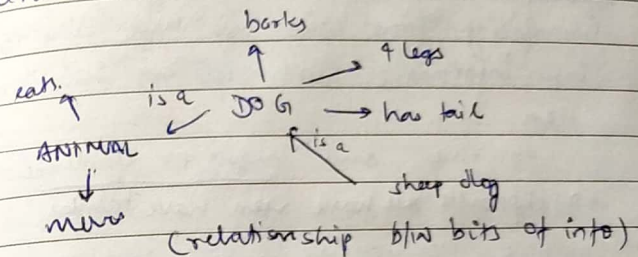 barks
4 legs
eats.
is a
DOG
has tail
ANIMAL
is a
sheep dog
(relationship b/w bits of info)